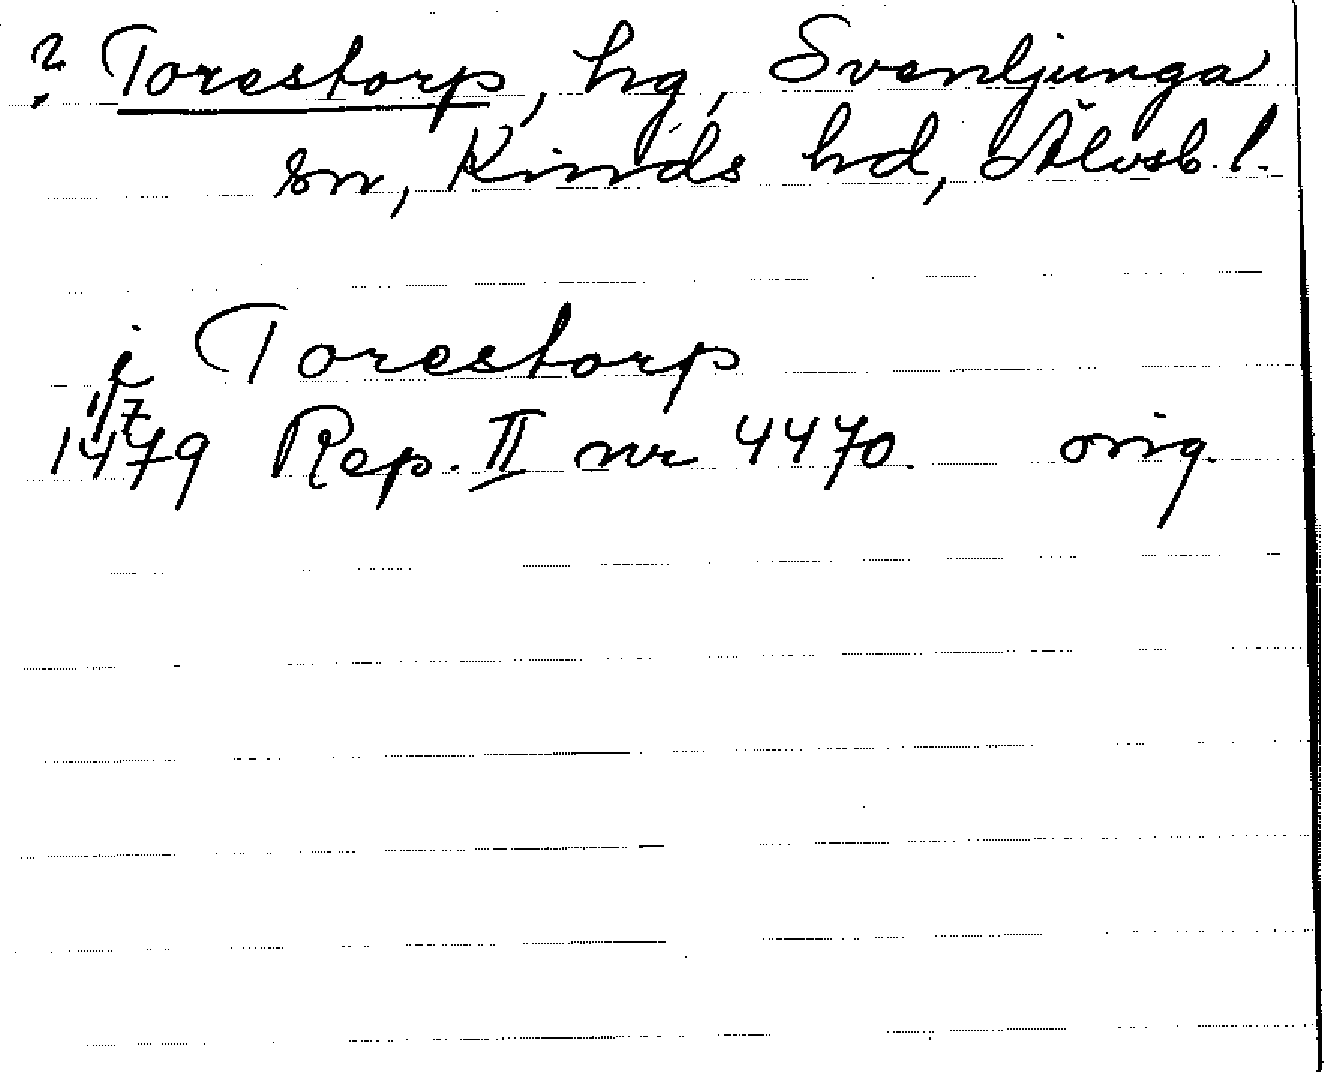 ? Torestorp, hg, Svenljunga
sn, Kinds hd, Älvsb. l.
i Torestorp
1479 11/7 Rep. II nr 4470. orig.